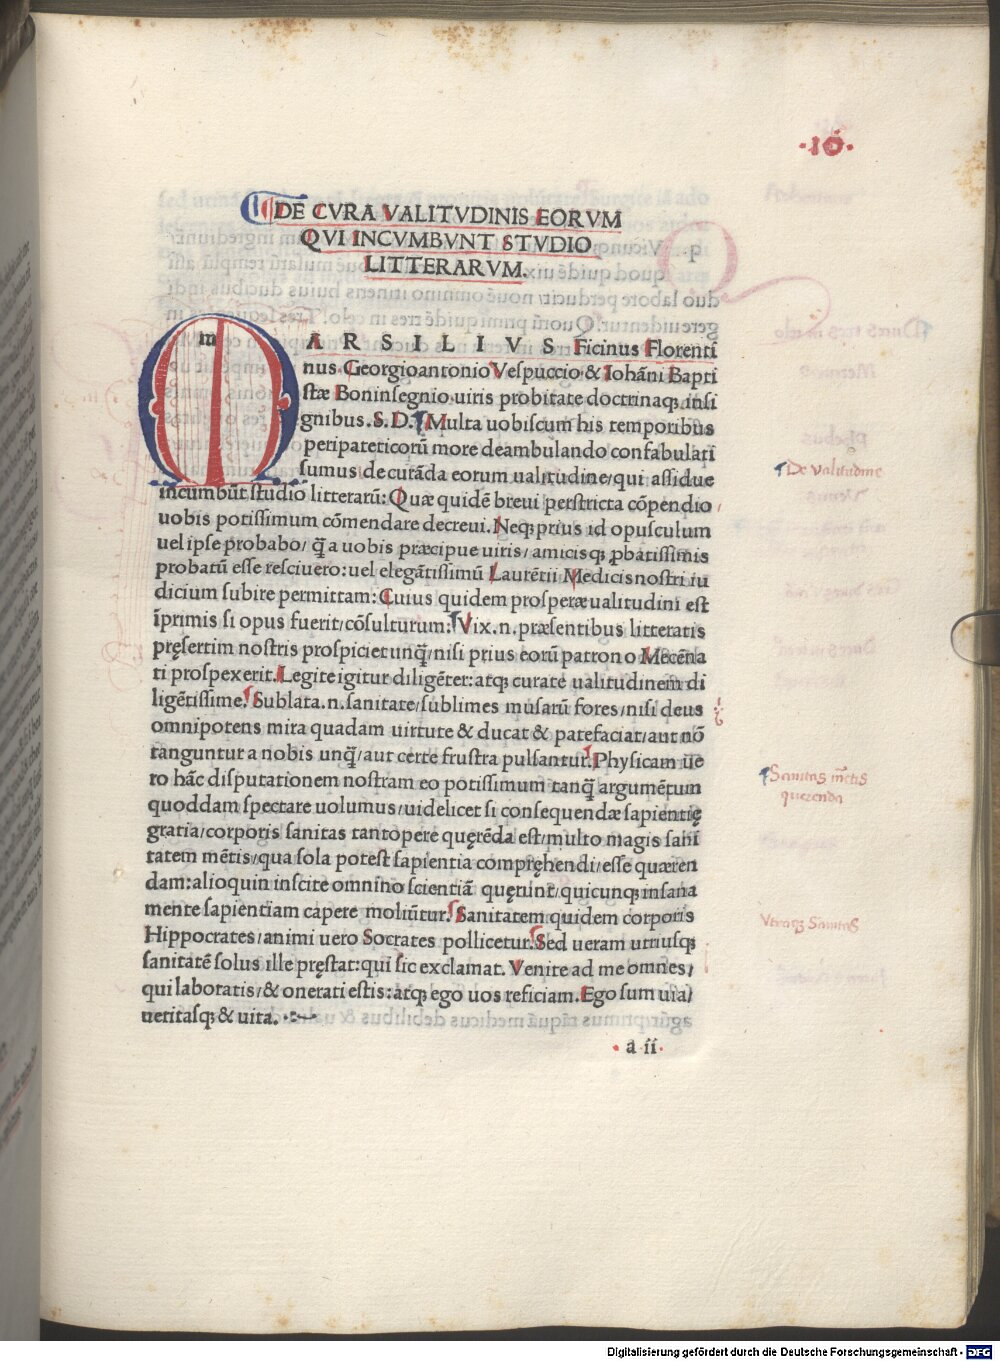 .10.
DE CVRA VALITVDINIS EORVM
QVI INCVMBVNT STVDIO
LITTERARVM.
m ARSILIVS Ficinus Florenti
nus Georgioantonio Vespuccio & Iohāni Bapti
stæ Boninsegnio uiris probitate doctrinaq; insi
gnibus.S.D. Multa uobiscum his temporibus
peripateticorū more deambulando confabulati
sumus de curāda eorum ualitudine/qui assidue
incumbūt studio litterarū: Quæ quidē brevi perstricta cōpendio
uobis potissimum cōmendare decreui. Neq; prius id opusculum
uel ipse probabo/ q̄ a uobis præcipue uiris/amicisq; ꝓbatissimis
probatū esse resciuero: uel elegātissimū Laurētii Medicis nostri iu
dicium subire permittam: Cuius quidem prosperæ ualitudini est
īprimis si opus fuerit/cōsulturum: Vix.n. præsentibus litteratis
pręsertim nostris prospicietunq̄/nisi prius eorū patrono Mecēna
ti prospexerit. Legite igitur diligēter: atq; curate ualitudinem di
ligētissime. Sublata.n.sanitate/sublimes musarū fores/nisi deus
omnipotens mira quadam uirtute & ducat & patefaciat/aut nō
tanguntur a nobis unq̄/aut certe frustra pulsantur. Physicam ūe
ro hāc disputationem nostram eo potissimum tanq̄ argumētum
quoddam spectare uolumus/uidelicet si consequendæ sapientię
gratia/corporis sanitas tantopere quęrēda est/multo magis sani
tatem mētis/qua sola potest sapientia compręhendi/esse quæren
dam: alioquin inscite omnino scientiā quęrunt/quicunq; insana
mente sapientiam capere moliūtur. Sanitatem quidem corporis
Hippocrates/animi uero Socrates pollicetur. Sed ueram utriusq;
sanitatē solus ille pręstat: qui sic exclamat. Venite ad me omnes/
qui laboratis/& onerati estis: atq; ego uos reficiam. Ego sum uia/
ueritasq; & uita.
a ii
De valitudine
Sanitas mētis
querenda
Vtraq; Sanitas
Digitalisierung gefördert durch die Deutsche Forschungsgemeinschaft - DFG